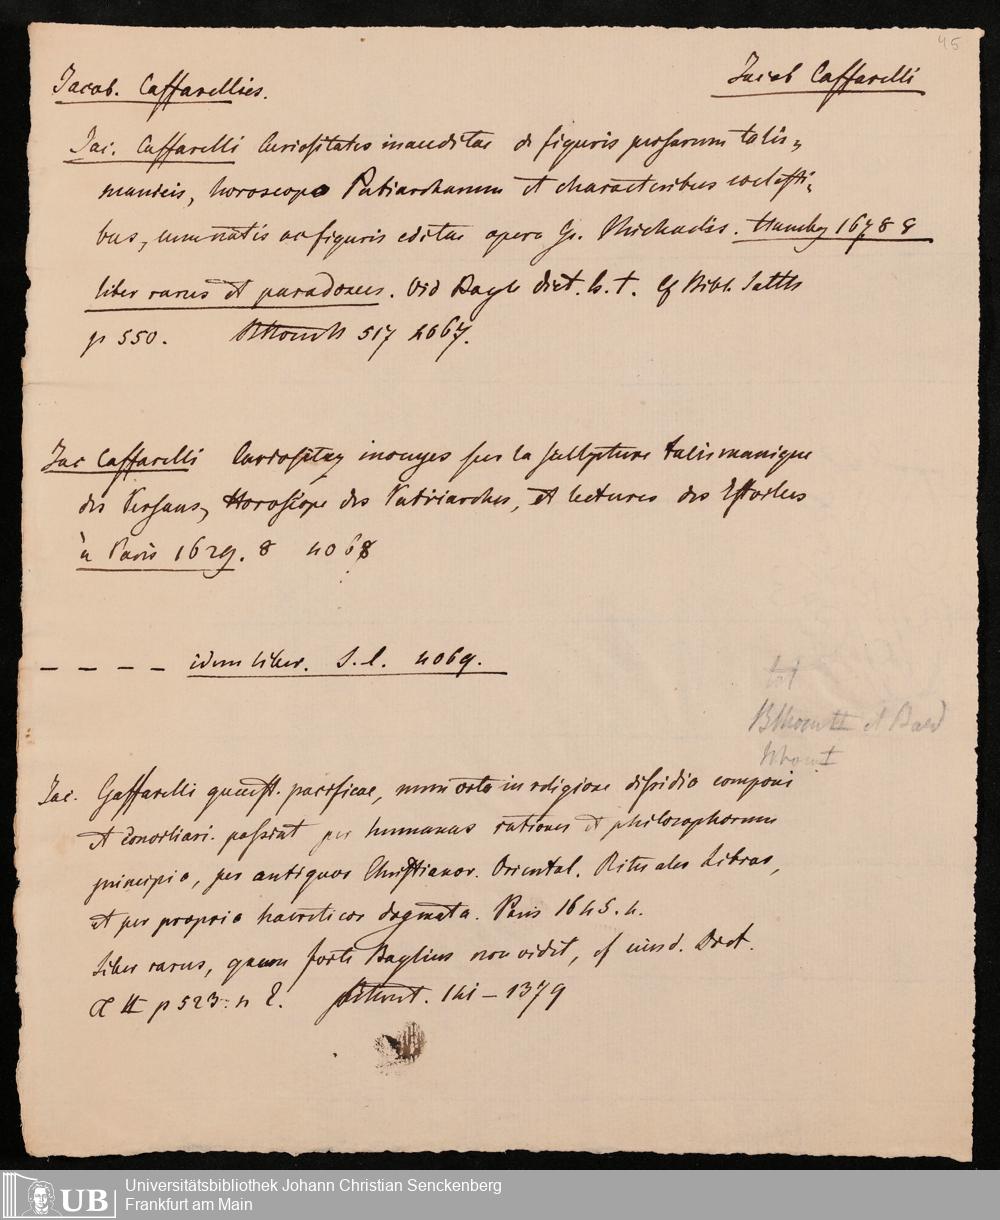 45
Jacob. Caffarellus.
Jacob Caffarelli
Jac. Caffarelli Curiositates inauditae de figuris persarum talis=
manicis, horoscopo Patriarcharum et characteribus coelesti=
bus, cum notis ac figuris editae opera Gr. Michaelis. Hambg 1678 8
liber rarus et paradoxus. Vid Bayle dict. h. t. Cf Bibl.
p 550. 517 4067.
Jac Caffarelli Curiositez inouyes sur la sculpture talismanique
des Persans, Horoscope des Patriarches, et lectures des Estoiles
à Paris 1629. 8 4068
– – – – idem liber. S. l. 4069.
tot
et
Jac. Gaffarelli quaest. pacificae, num orta in religione dissidia componi
et conciliari possint per humanas rationes et philosophorum
principia, per antiquos Christianor. Oriental. Rituales Libros,
et per propria haereticor dogmata. Paris 1645. 4.
Liber rarus, quem forte Baylius non vidit, cf eiusd. Dict.
T II p 523: n 141 – 1379
UB
Universitätsbibliothek Johann Christian Senckenberg
Frankfurt am Main